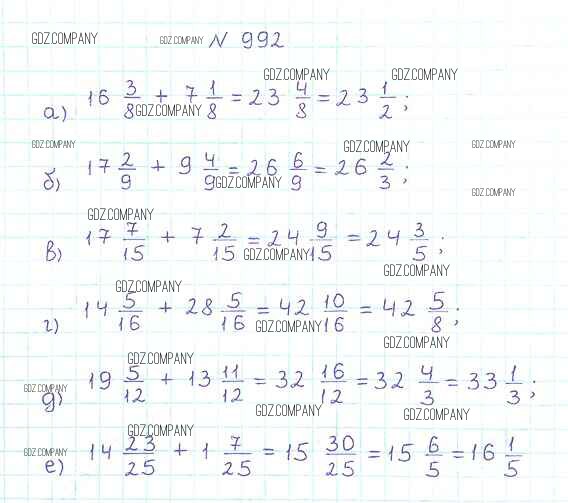 GDZ.COMPANY GDZ.COMPANY № 992
GDZ.COMPANY GDZ.COMPANY
а) 16 3/8 + 7 1/8 = 23 4/8 = 23 1/2;
GDZ.COMPANY
GDZ.COMPANY GDZ.COMPANY GDZ.COMPANY
б) 17 2/9 + 9 4/9 = 26 6/9 = 26 2/3;
GDZ.COMPANY GDZ.COMPANY
GDZ.COMPANY
в) 17 7/15 + 7 2/15 = 24 9/15 = 24 3/5;
GDZ.COMPANY
GDZ.COMPANY
GDZ.COMPANY
г) 14 5/16 + 28 5/16 = 42 10/16 = 42 5/8;
GDZ.COMPANY
GDZ.COMPANY
GDZ.COMPANY
д) 19 5/12 + 13 11/12 = 32 16/12 = 32 4/3 = 33 1/3;
GDZ.COMPANY
GDZ.COMPANY GDZ.COMPANY
GDZ.COMPANY
е) 14 23/25 + 1 7/25 = 15 30/25 = 15 6/5 = 16 1/5
GDZ.COMPANY